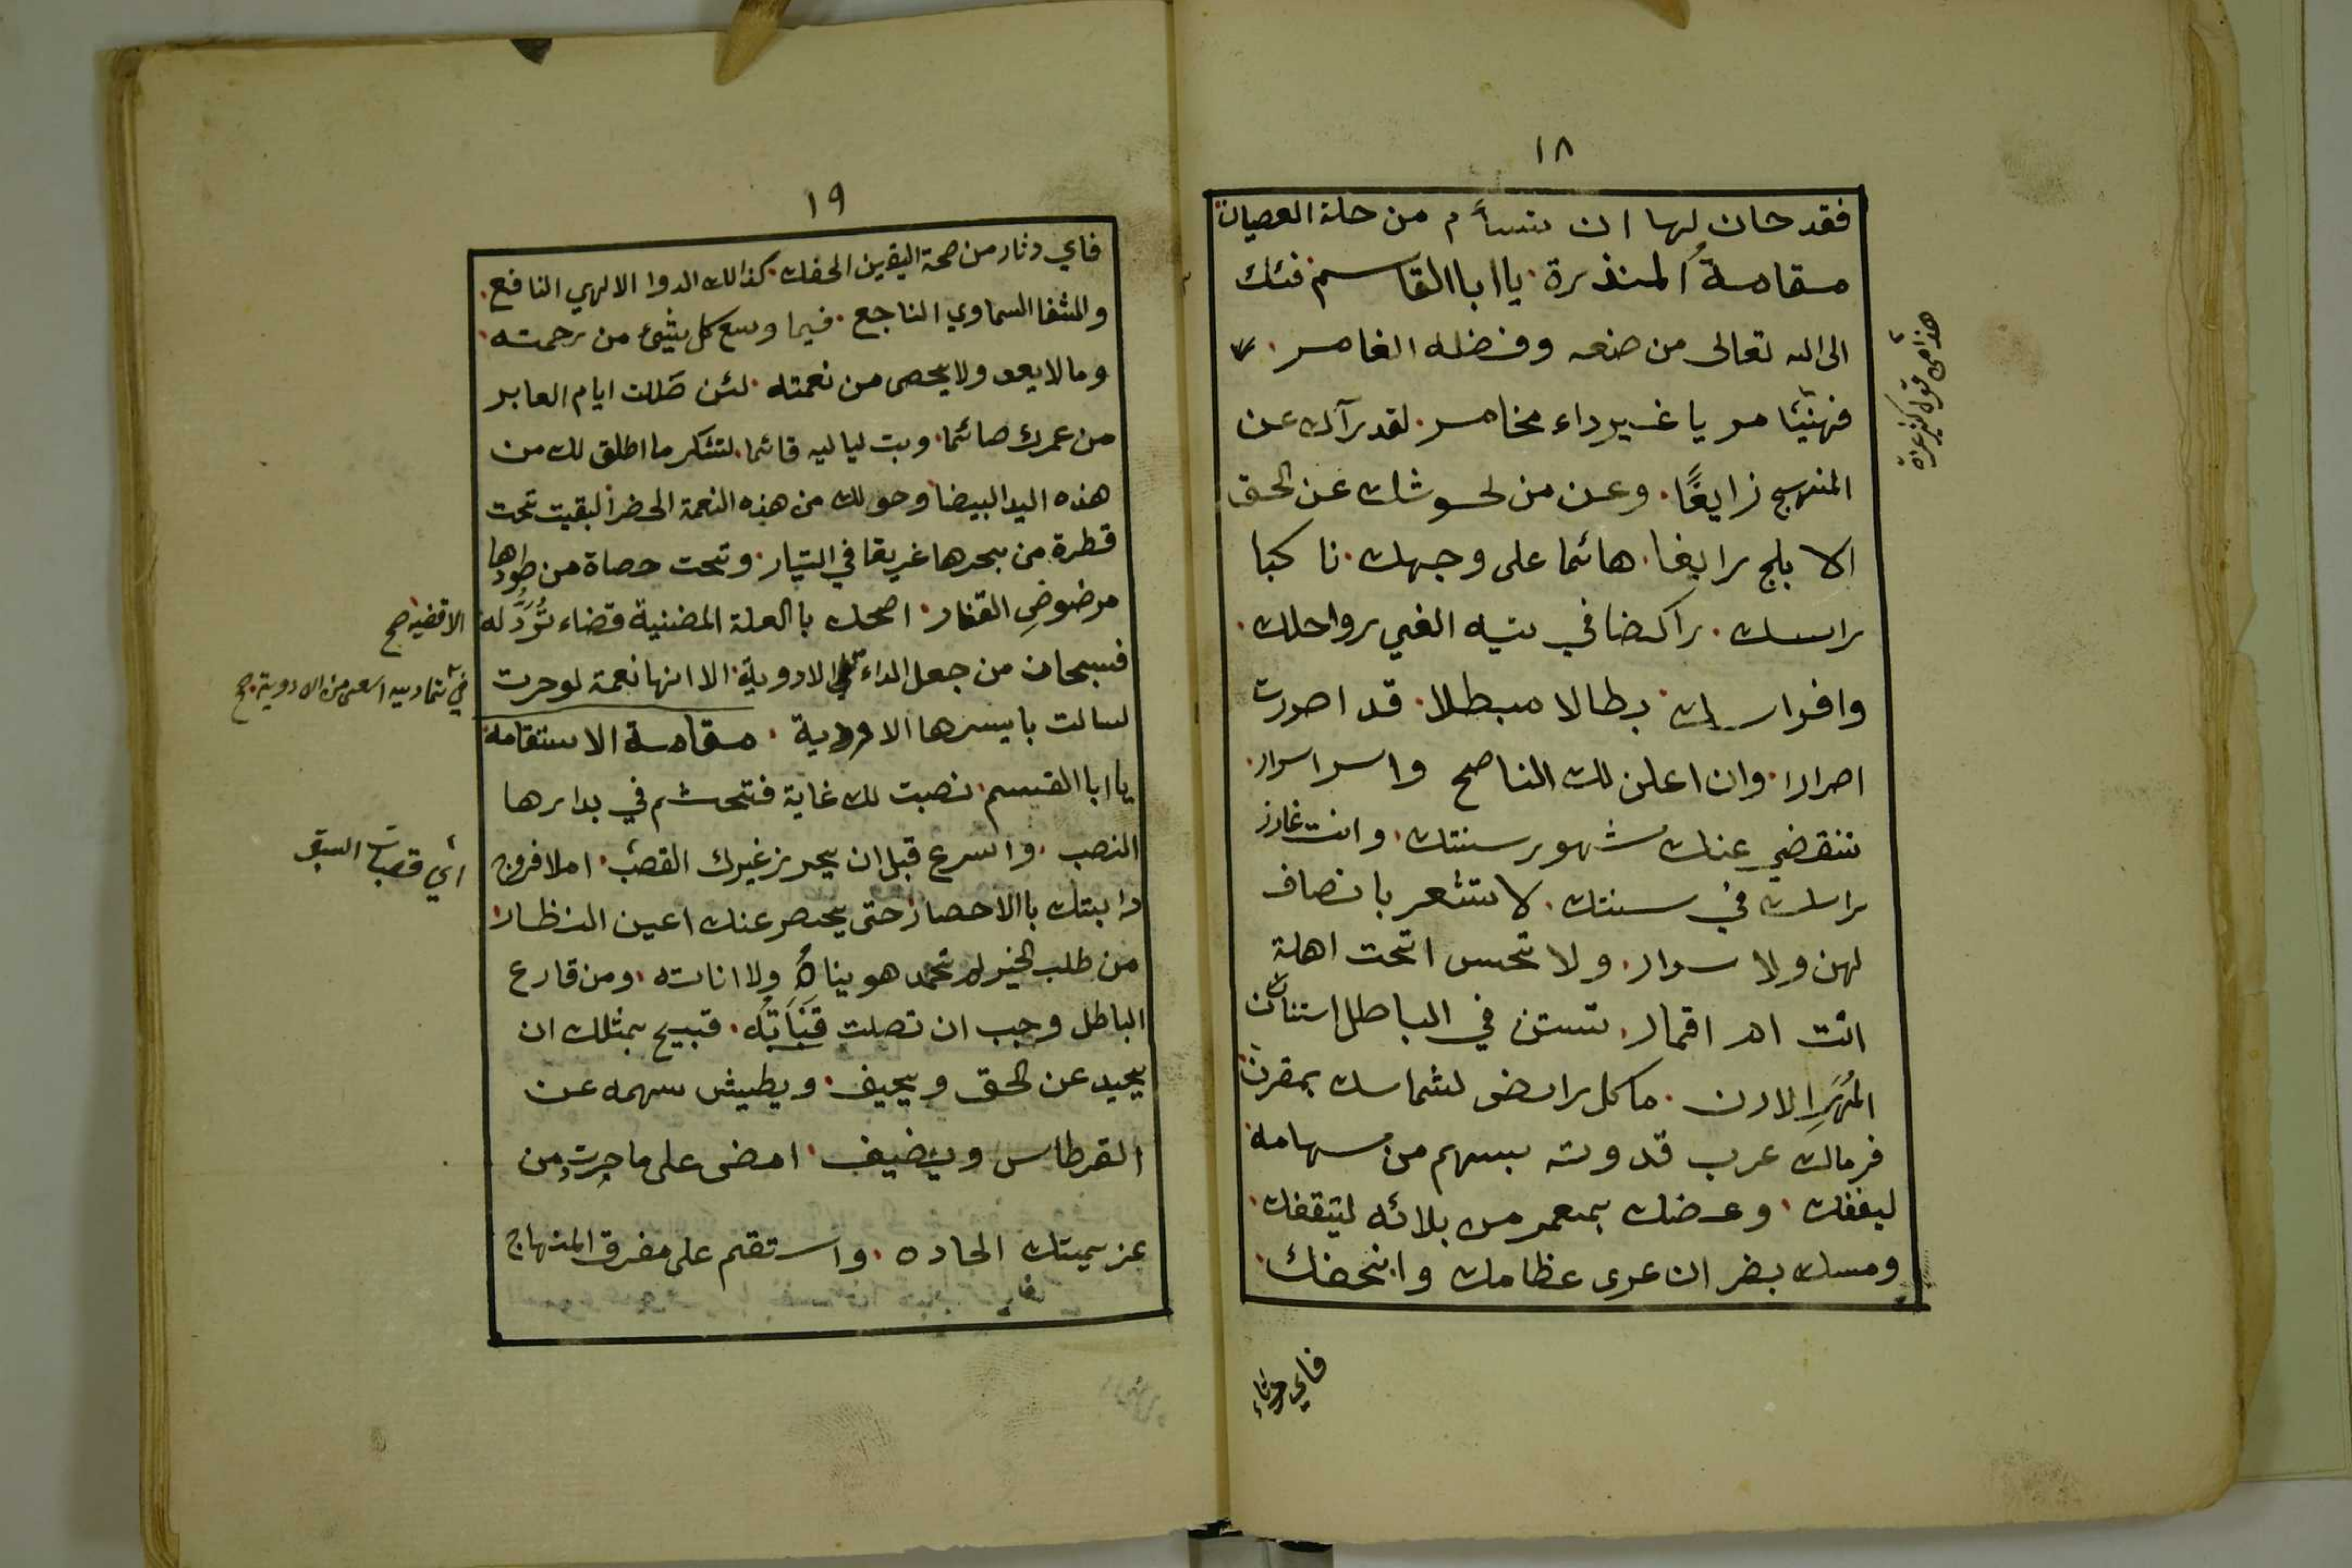 ١٨
فقد حان لها ان تسأم من حلة العصيان
مقامة المنذرة يا ابا القاسم فئك
الى الله تعالى من صنعه وفضله الغامر
فهنيئا مريا غير داء مخامر لقد رآك عن
المنهج زايغًا وعن من لحوشك عن الحق
الا بلج رايغا هائما على وجهك نا كبا
راسك راكضا في تيه الغي رواحلك
وافراسك بطالا مبطلا قد اصررت
اصرارا وان اعلن لك الناصح واسر اسرار
تنقضي عنك شهور سنتك وانت غارز
راسك في سنتك لا تشعر بانصاف
لهن ولا سرار ولا تحس اتحت اهلة
انت ام اقمار تستن في الباطل استنان
المُهَرِ الارن ما كل رايض لشماسك بمقرن
فرماك عرب قدوته بسهم من سهامه
ليقفك وعضك بمعمر من بلائه ليثقفك
ومسك بضر ان عرى عظامك وانحفك
هنيأ مريأ قول كثير عزة
فاي دثار
١٩
فاي دثار من صحة اليقين الحفك كذالك الدوا الالهي النافع
والشفا السماوي الناجع فيما وسع كل شيئ من رحمته
وما لا يعد ولا يحصى من نعمته لئن ظللت ايام العابر
من عمرك صائما وبت لياليه قائما لتشكر ما اطلق لك من
هذه اليد البيضا وحولك من هذه النعمة الخضرا لبقيت تحت
قطرة من بحرها غريقا في التيار وتحت حصاة من طودها
مرضوضِ القفار اصحك باالعلة المضنية قضاء تُرَدُّ له
الاقضيه صح
فسبحان من جعل الداء الادوية الا انها نعمة لوجرت
في اثنا دييه اسعى من الادوية صح
لسالت بايسرها الاودية مقامة الاستقامة
يا ابا القسم نصبت لك غاية فتحشم في بدارها
النصب واسرع قبل ان يحرز غيرك القصب املا فروج
اي قصبات السبق
دابتك باالاحضار حتى يحصر عنك اعين النظار
من طلب الخير لم تحمد هويناه ولا اناته ومن قارع
الباطل وجب ان تصلت قَنَاتُه قبيح بمثلك ان
يحيد عن الحق ويحيف ويطيش سهمه عن
القرطاس ويضيف امضى على ماجرت من
عزيمتك الحاده واستقم على مفرق المنهاج